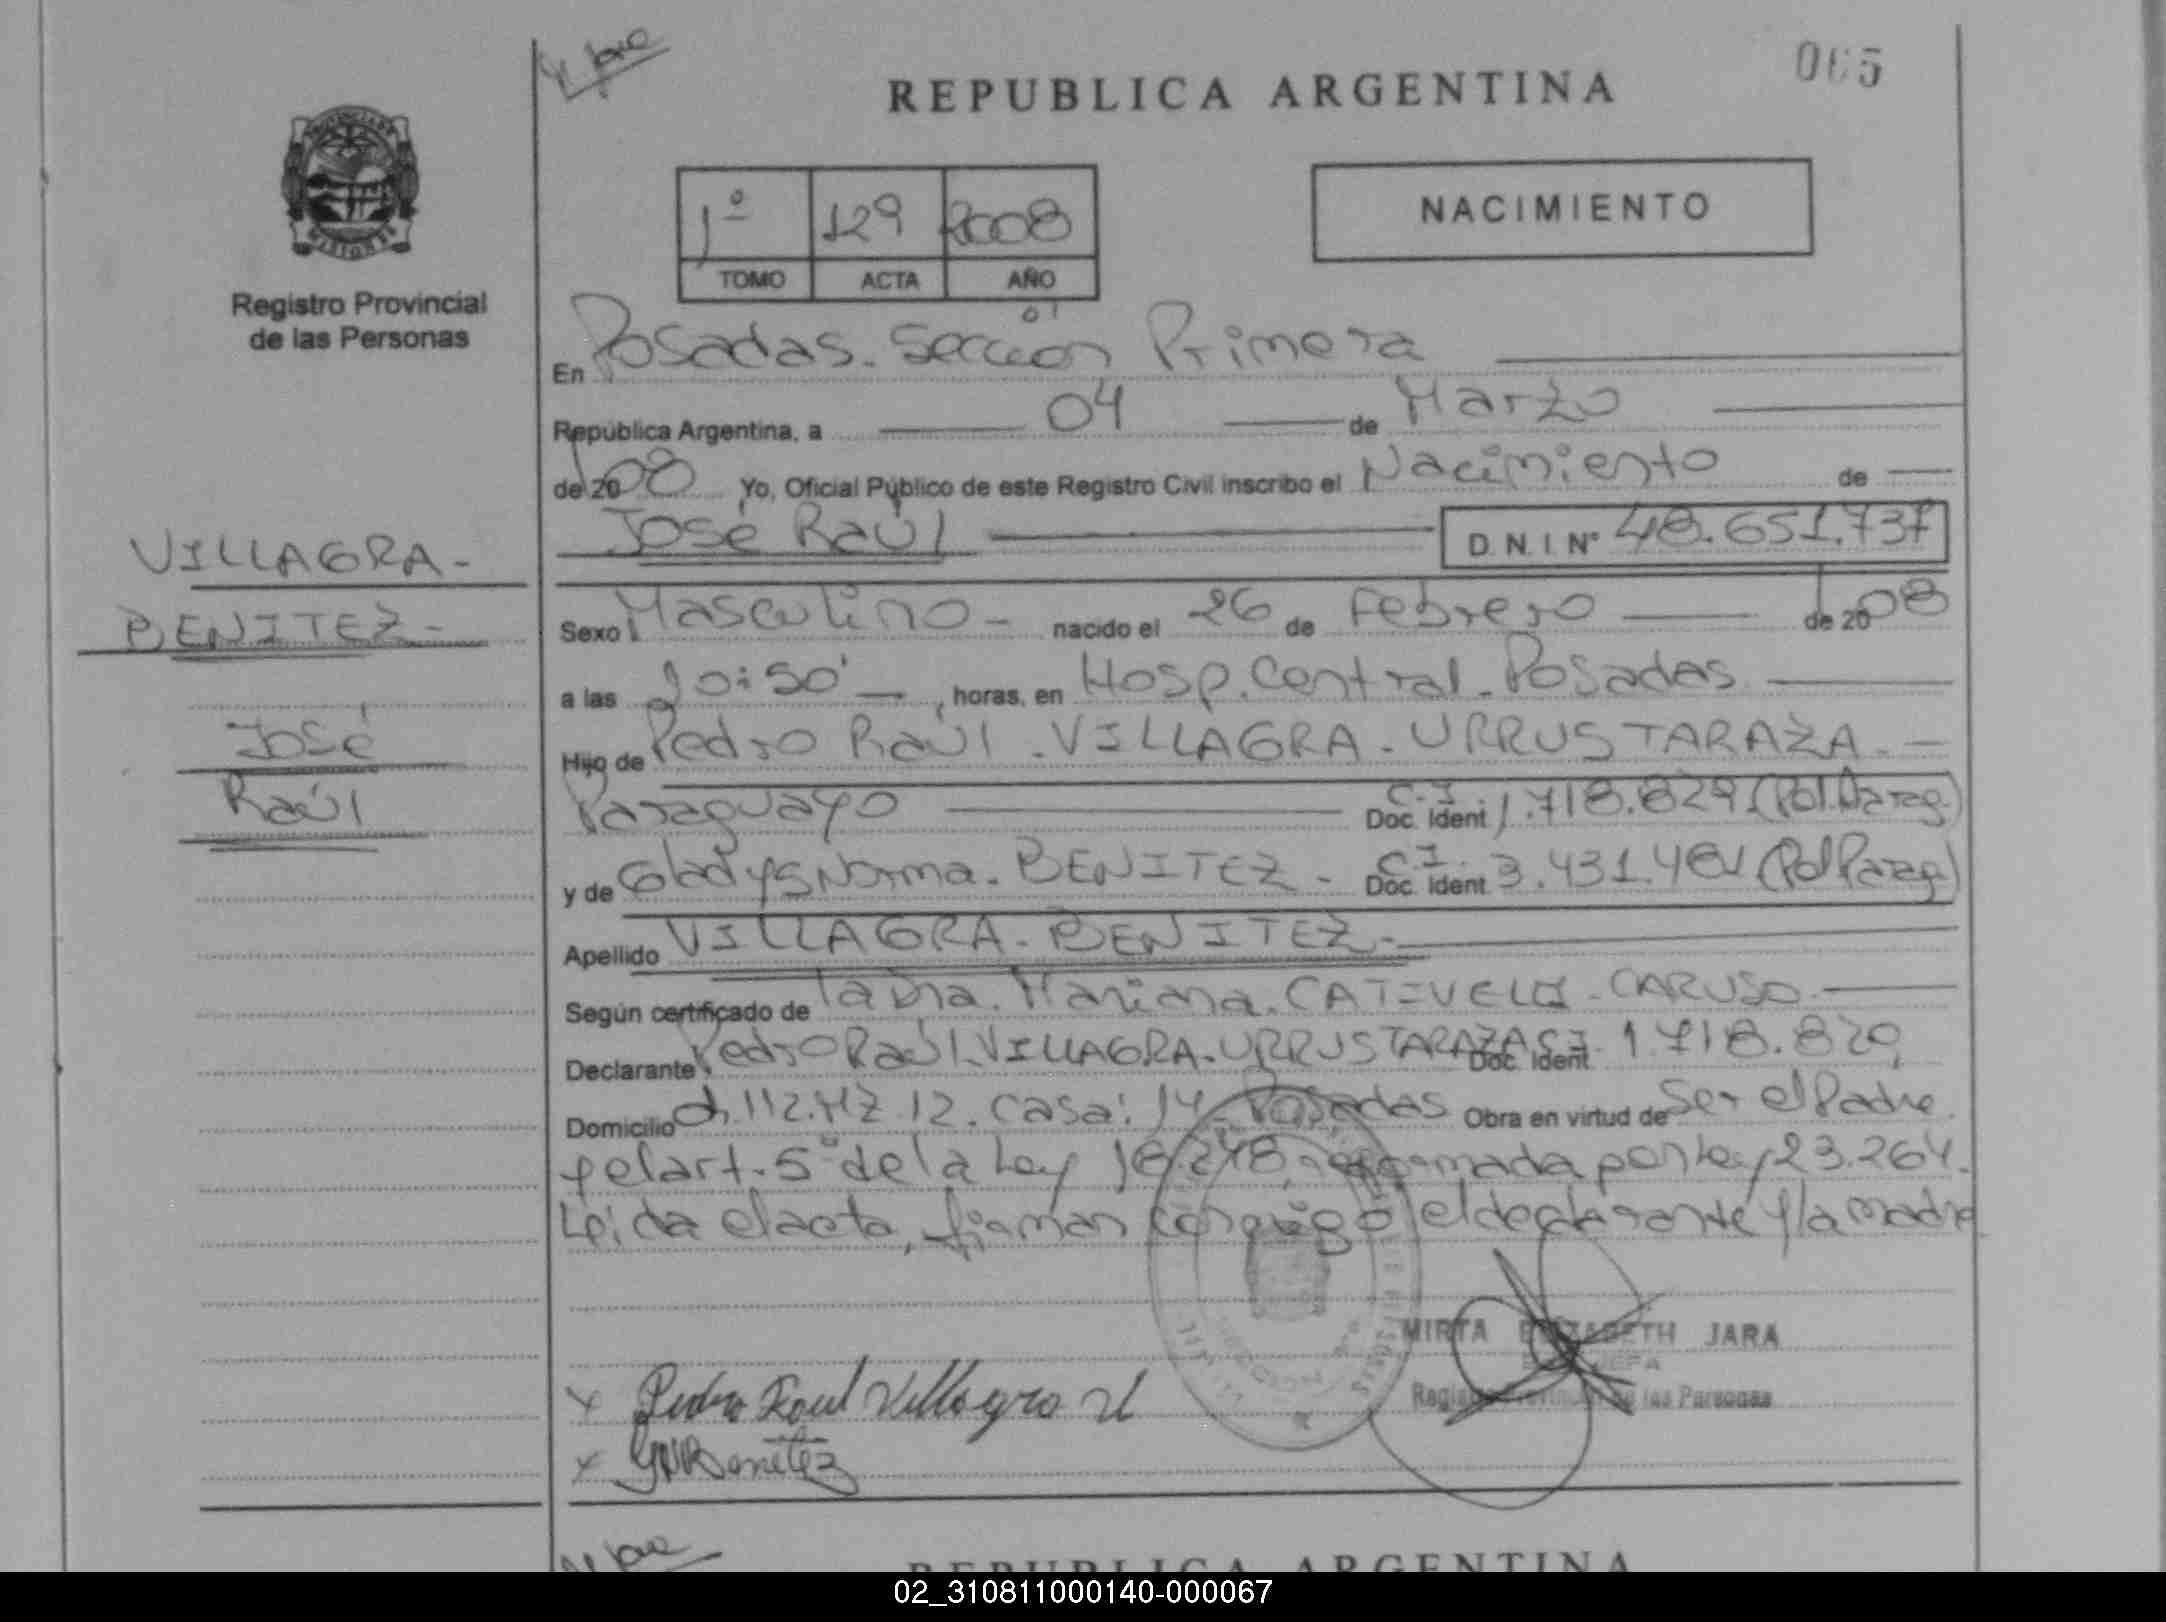 065
REPUBLICA ARGENTINA
NACIMIENTO
1º 129 2008
TOMO ACTA AÑO
Registro Provincial
de las Personas
VILLAGRA-
BENITEZ-
José
Raúl
En Posadas. Sección Primera
República Argentina, a 04 de Marzo
de 2008 Yo, Oficial Público de este Registro Civil inscribo el Nacimiento de
José Raúl D.N.I. Nº 48.651.737
Sexo Masculino - nacido el 26 de Febrero de 2008
a las 20:50' , horas, en Hosp. Central - Posadas
Hijo de Pedro Raúl - VILLAGRA - URRUSTARAZA -
Paraguayo C.I. Doc. Ident. 1.718.829 (Pol. Parag.)
y de Gladys Norma. BENITEZ - C.I. Doc. Ident. (Pol Parag)
Apellido VILLAGRA - BENITEZ -
Según certificado de Mariana. CARUSO
Declarante Pedro Raúl VILLAGRA - URRUSTARAZA C.I. Doc. Ident. 1.718.829,
Domicilio ch. 112. MZ 12. Casa: 14. Posadas Obra en virtud de Ser el Padre
y el art. 5º de la Ley 18.248, reformada por Ley 23.264.
Leída el acta, firman conmigo el declarante y la madre
MIRTA ELIZABETH JARA
Registro Provincial de las Personas
x Pedro Raul Villagra U
x GNBenítez
REPUBLICA ARGENTINA
02_310811000140-000067